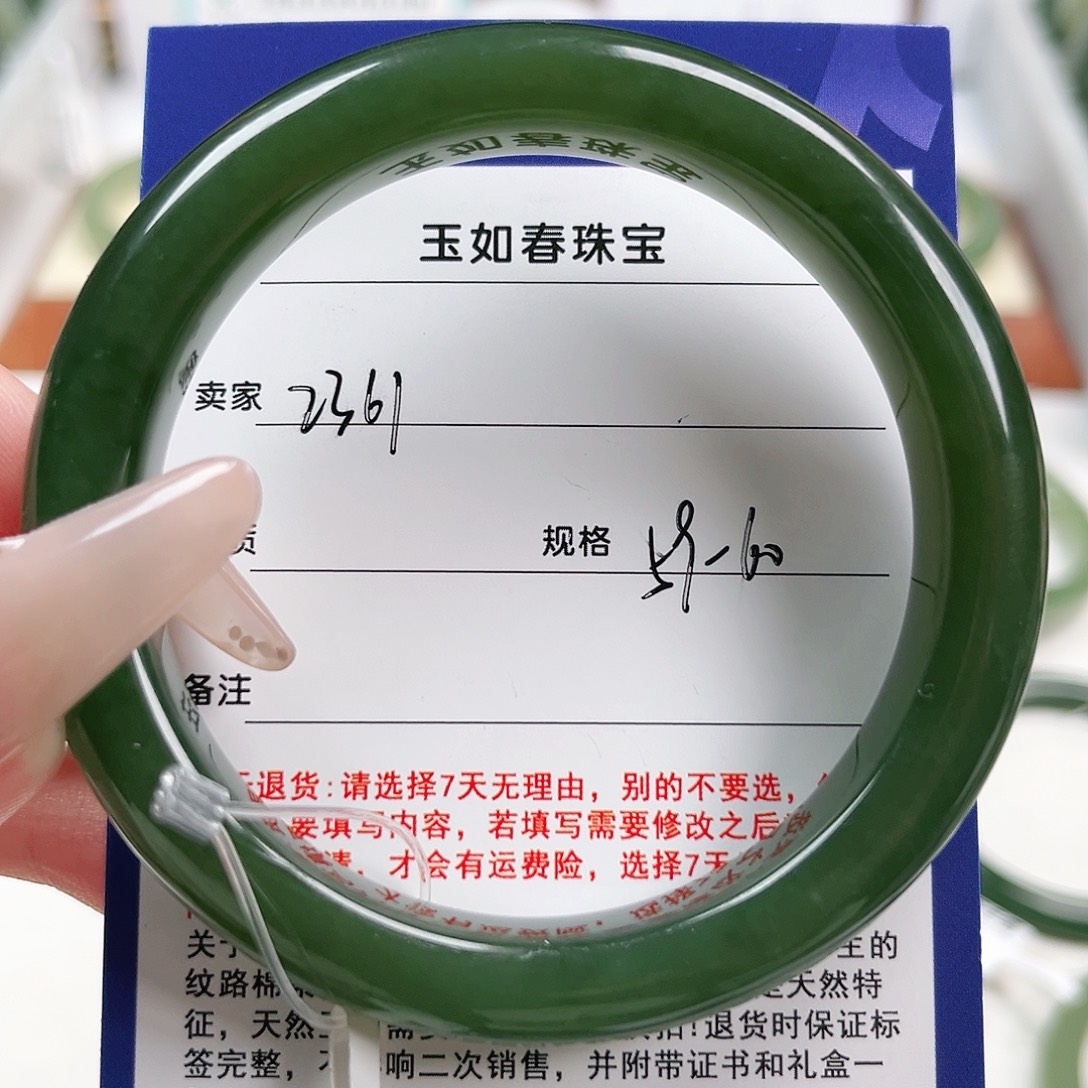 玉如春珠宝
卖家 2361
质 规格 59-60
备注
退货:请选择7天无理由，别的不要选，
要填写内容，若填写需要修改之后
才会有运费险，选择7天
关于 主的
纹路棉 是天然特
征，天然 需 退货时保证标
签完整， 响二次销售，并附带证书和礼盒一